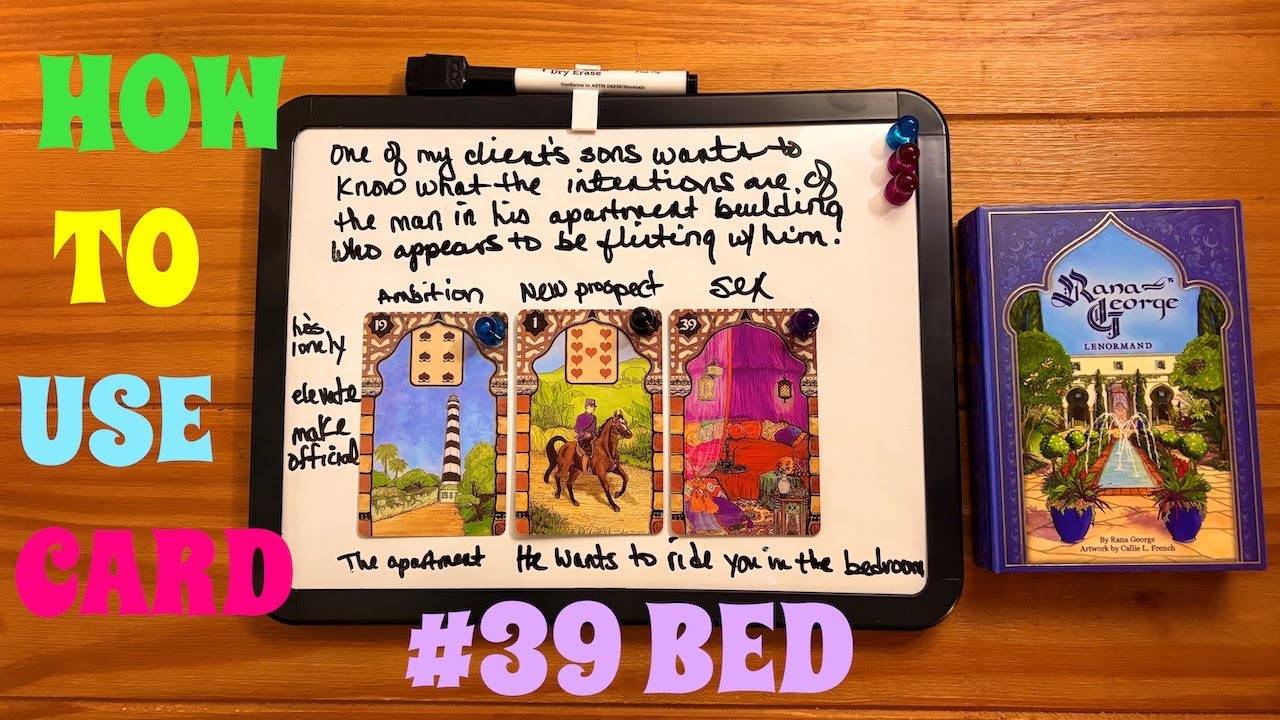 HOW
TO
USE
CARD
#39 BED
Dry Erase
Fine Tip
Conforms to ASTM D4236/Nontoxic
One of my client's sons wants to
know what the intentions are of
the man in his apartment building
who appears to be flirting w/ him.
Ambition New prospect sex
he's
lonely
elevate
make
official
19 1 39
The apartment He wants to ride you in the bedroom
Rana
George
LENORMAND
By Rana George
Artwork by Callie L. French